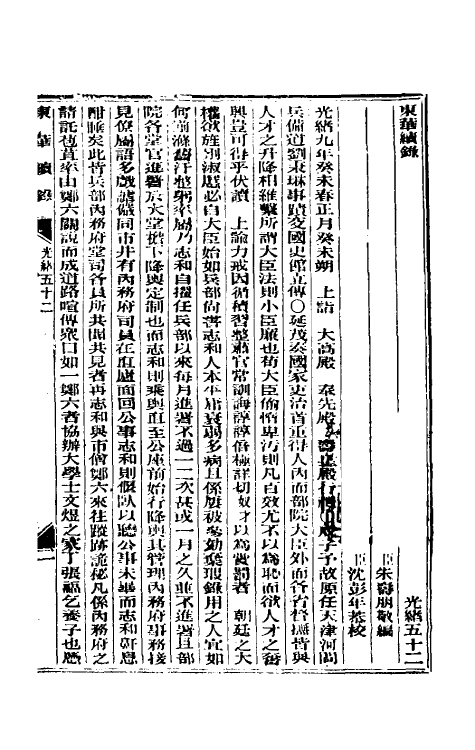 東華續錄
光緒五十二
臣朱壽朋敬編
臣沈彭年恭校
光緒九年癸未春正月癸未朔　上詣　大高殿　奉先殿　壽皇殿行禮　予故原任天津河間
兵備道劉秉琳事蹟交國史館立傳○延茂奏國家吏治首重得人內而部院大臣外而各省督撫皆與
人才之升降相維繫所謂大臣法則小臣廉也苟大臣偷惰卑污則凡百效尤不以為恥而欲人才之奮
興豈可得乎伏讀　上諭力戒因循積習整肅官常訓誨諄諄備極詳切奴才以為賞罰者　朝廷之大
權欲旌別淑慝必自大臣始如兵部尚書志和人本平庸衰弱多病且係屢被參劾棄瑕錄用之人宜如
何前滌舊汙整躬率屬乃志和自擢任兵部以來每月進署不過一二次甚或一月之久並不進署且部
院各堂官進署於大堂檐下降輿定制也而志和則乘輿直至公座前始行降輿其管理內務府事務接
見僚屬語多戲謔儼同市井有內務府司員在直廬面回公事志和則偃臥以聽公事未畢而志和鼾息
酣睡矣此皆兵部內務府堂司各員所共聞共見者再志和與市儈鄭六來往蹤跡詭秘凡係內務府之
請託苞苴率由鄭六關說而成道路喧傳眾口如一鄭六者協辦大學士文煜之家丁張福乞養子也應
東華續錄　光緒五十二　一